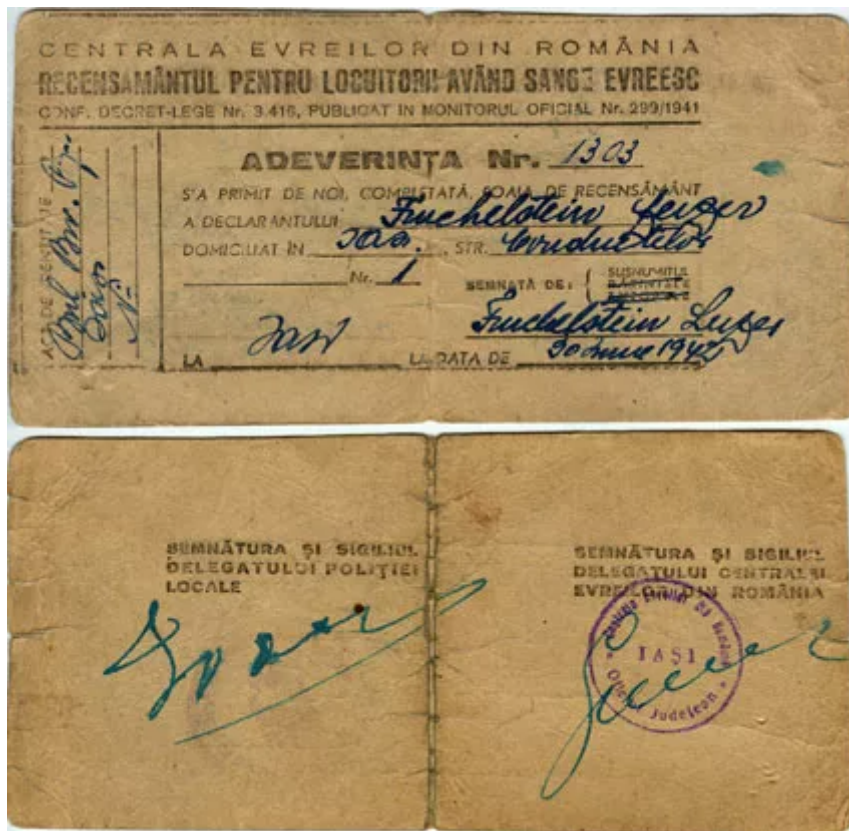 CENTRALA EVREILOR DIN ROMÂNIA
RECENSAMÂNTUL PENTRU LOCUITORII AVÂND SANGE EVREESC
CONF. DECRET-LEGE Nr. 3.416, PUBLICAT IN MONITORUL OFICIAL Nr. 299/1941
ADEVERINȚA Nr. 1303
S'A PRIMIT DE NOI, COMPLETATĂ, FOAIA DE RECENSĂMÂNT
A DECLARANTULUI Fruchelstein Leizer
DOMICILIAT ÎN Iași, STR.
Nr. 1 SEMNATĂ DE: { SUSNUMITUL
PĂRINTELE
Fruchelstein Leizer
LA Iași LA DATA DE 30 Iunie 1942
ACT DE IDENTITATE
Iași
SEMNĂTURA ȘI SIGILIUL
DELEGATULUI POLIȚIEI
LOCALE
SEMNĂTURA ȘI SIGILIUL
DELEGATULUI CENTRALEI
EVREILOR DIN ROMÂNIA
Centrala Evreilor din România
IAȘI
Oficiul Județean